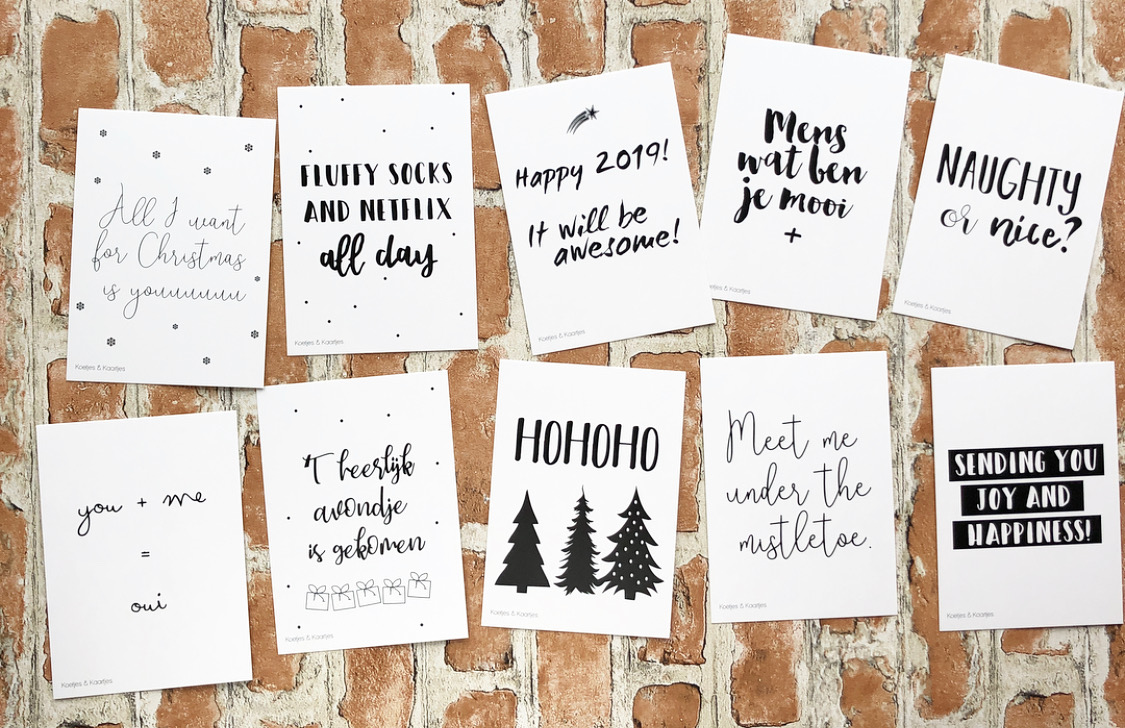 All I want
for Christmas
is youuuuuuu
Koetjes & Kaartjes
FLUFFY SOCKS
AND NETFLIX
all day
Koetjes & Kaartjes
Happy 2019!
It will be
awesome!
Koetjes & Kaartjes
Mens
wat ben
je mooi
+
Koetjes & Kaartjes
NAUGHTY
or nice?
Koetjes & Kaartjes
you + me
=
oui
Koetjes & Kaartjes
'T heerlijk
avondje
is gekomen
Koetjes & Kaartjes
HOHOHO
Koetjes & Kaartjes
Meet me
under the
mistletoe.
Koetjes & Kaartjes
SENDING YOU
JOY AND
HAPPINESS!
Koetjes & Kaartjes